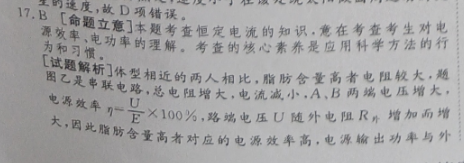 里的速度,故D项错误。
17.B 【命题立意】本题考查恒定电流的知识,意在考查考生对电
源效率、电功率的理解。考查的核心素养是应用科学方法的行
为和习惯。
【试题解析】体型相近的两人相比,脂肪含量高者电阻较大,题
图乙是串联电路,总电阻增大,电流减小,A、B两端电压增大,
电源效率η=U/E×100%,路端电压U随外电阻R外增加而增
大,因此脂肪含量高者对应的电源效率高,电源输出功率与外